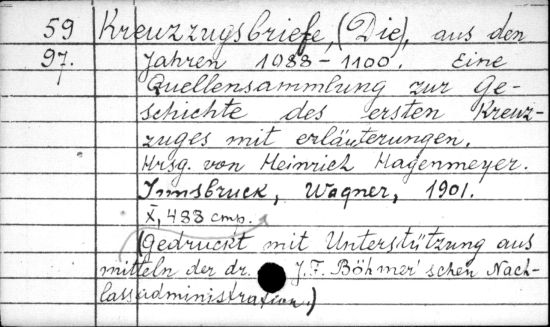 59 Kreuzzugsbriefe, (Die), aus den
97. Jahren 1088-1100. Eine
Quellensammlung zur Ge-
schichte des ersten Kreuz-
zuges mit erläuterungen.
Hrsg. von Heinrich Hagenmeyer.
Innsbruck, Wagner, 1901.
X, 488 cmp.
(Gedruckt mit Unterstützung aus
mitteln der dr. J.F. Böhmer'schen Nach-
lassadministration.)